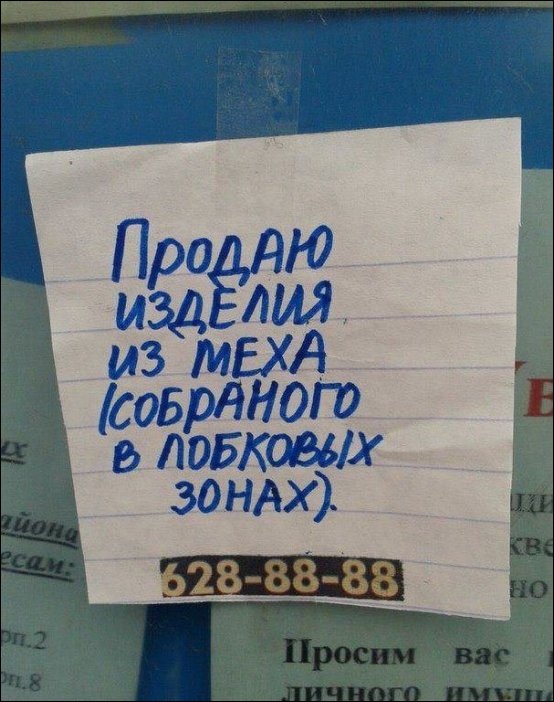 Продаю
изделия
из меха
(собраного
в лобковых
зонах).
628-88-88
айона
есам:
рп.2
рп.8
Просим вас
личного